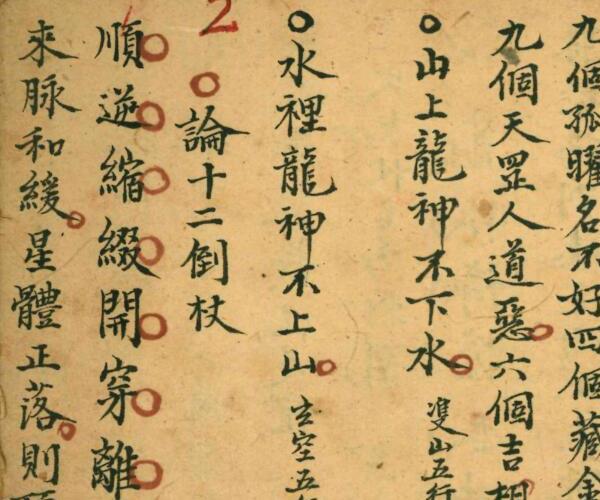 九個孤曜名不好四個藏金
九個天罡人道惡六個吉相
山上龍神不下水 雙山五行
水裡龍神不上山 玄空五行
2
論十二倒杖
順逆縮綴開穿離
來脉和緩星體正落則